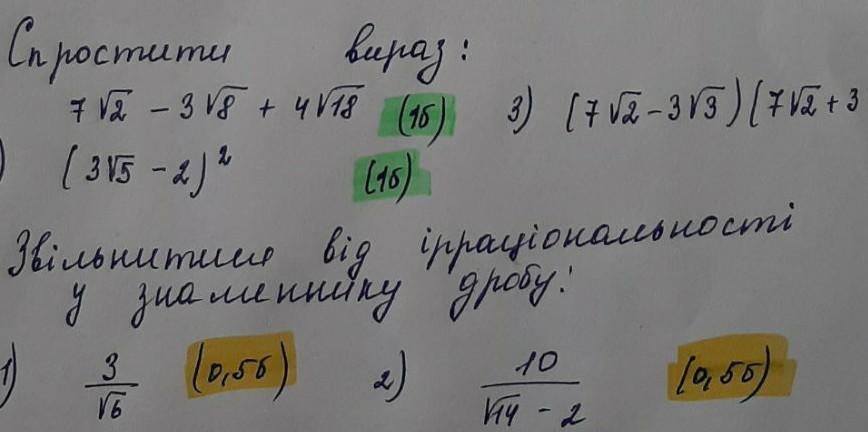 Спростити вираз:
7√2 - 3√8 + 4√18 (1б) 3) (7√2 - 3√3)(7√2 + 3
) (3√5 - 2)² (1б)
Звільнитися від ірраціональності
у знаменнику дробу:
1) 3/√6 (0,5б) 2) 10/(√14 - 2) (0,5б)